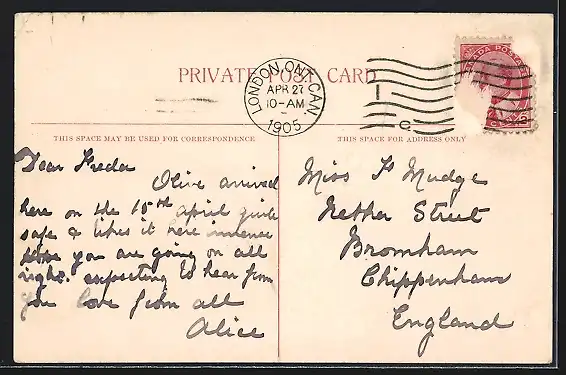 PRIVATE POST CARD
LONDON, ONT. CAN.
APR 27
10-AM
1905
THIS SPACE MAY BE USED FOR CORRESPONDENCE
THIS SPACE FOR ADDRESS ONLY
Dear Freda
Olive arrived
here on the 10th april quite
safe & likes it here immence
hope you are going on all
right. expecting to hear from
you love from all
Alice
Miss F Mudge
Nethe Street
Bromham
Chippenham
England